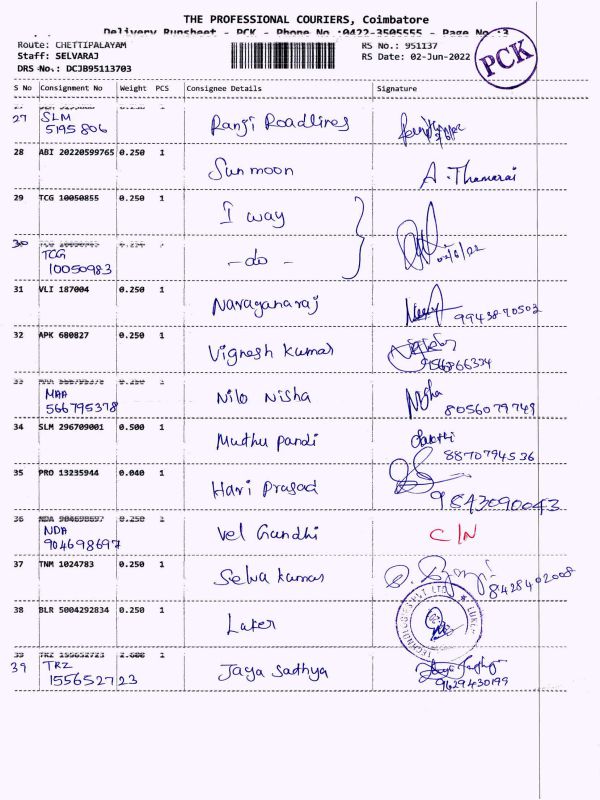 THE PROFESSIONAL COURIERS, Coimbatore
Delivery Runsheet - PCK - Phone No :0422-3505555 - Page No :3
Route: CHETTIPALAYAM RS No.: 951137
Staff: SELVARAJ RS Date: 02-Jun-2022
DRS No.: DCJB95113703
PCK
S No Consignment No Weight PCS Consignee Details Signature
27 SLM Ranji Roadlines
5195806
28 ABI 20220599765 0.250 1 Sun moon A. Thamarai
29 TCG 10050855 0.250 1 I way
30 TCG - do - 02/6/22
10050983
31 VLI 187004 0.250 1 Narayanaraj 99438-70503
32 APK 680827 0.250 1 Vignesh Kumar
33 MAA 566795378 0.250 1
MAA Nilo Nisha Nisha
566795378 8056079749
34 SLM 296709001 0.500 1 Muthu pandi
8870794536
35 PRO 13235944 0.040 1 Hari Prasad 9843090043
36 NDA 904698697 0.250 1
NDA Vel Gandhi C/N
904698697
37 TNM 1024783 0.250 1 Selva kumar 8428402008
38 BLR 5004292834 0.250 1 Luker
TECHNOLOGIES PVT LTD * LUKER
39 TRZ 155652723 2.600 1
39 TRZ Jaya Sadhya
155652723 9629430199